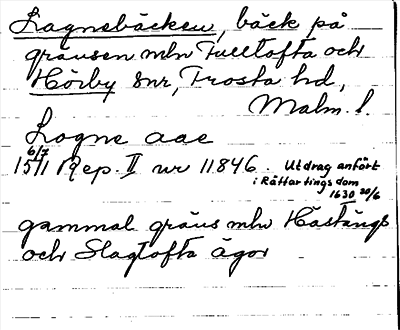 Lagnebäcken, bäck på
gränsen mln Fulltofta och
Hörby snr, Frosta hd,
Malm. l.
Logne aae
6/7
1511 Rep. II nr 11846. Utdrag anfört
i Rättartingsdom
1630 20/6
gammal gräns mln Hästängs
och Slagtofta ägor